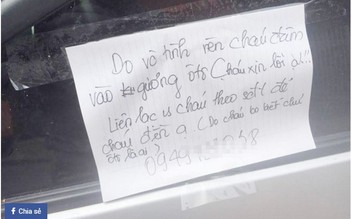 Do vô tình nên cháu đâm
vào gương ôtô Cháu xin lỗi ạ!!
Liên lạc vs cháu theo sđt để
cháu đền ạ (Do cháu ko biết chủ
ôtô là ai)
Chia sẻ